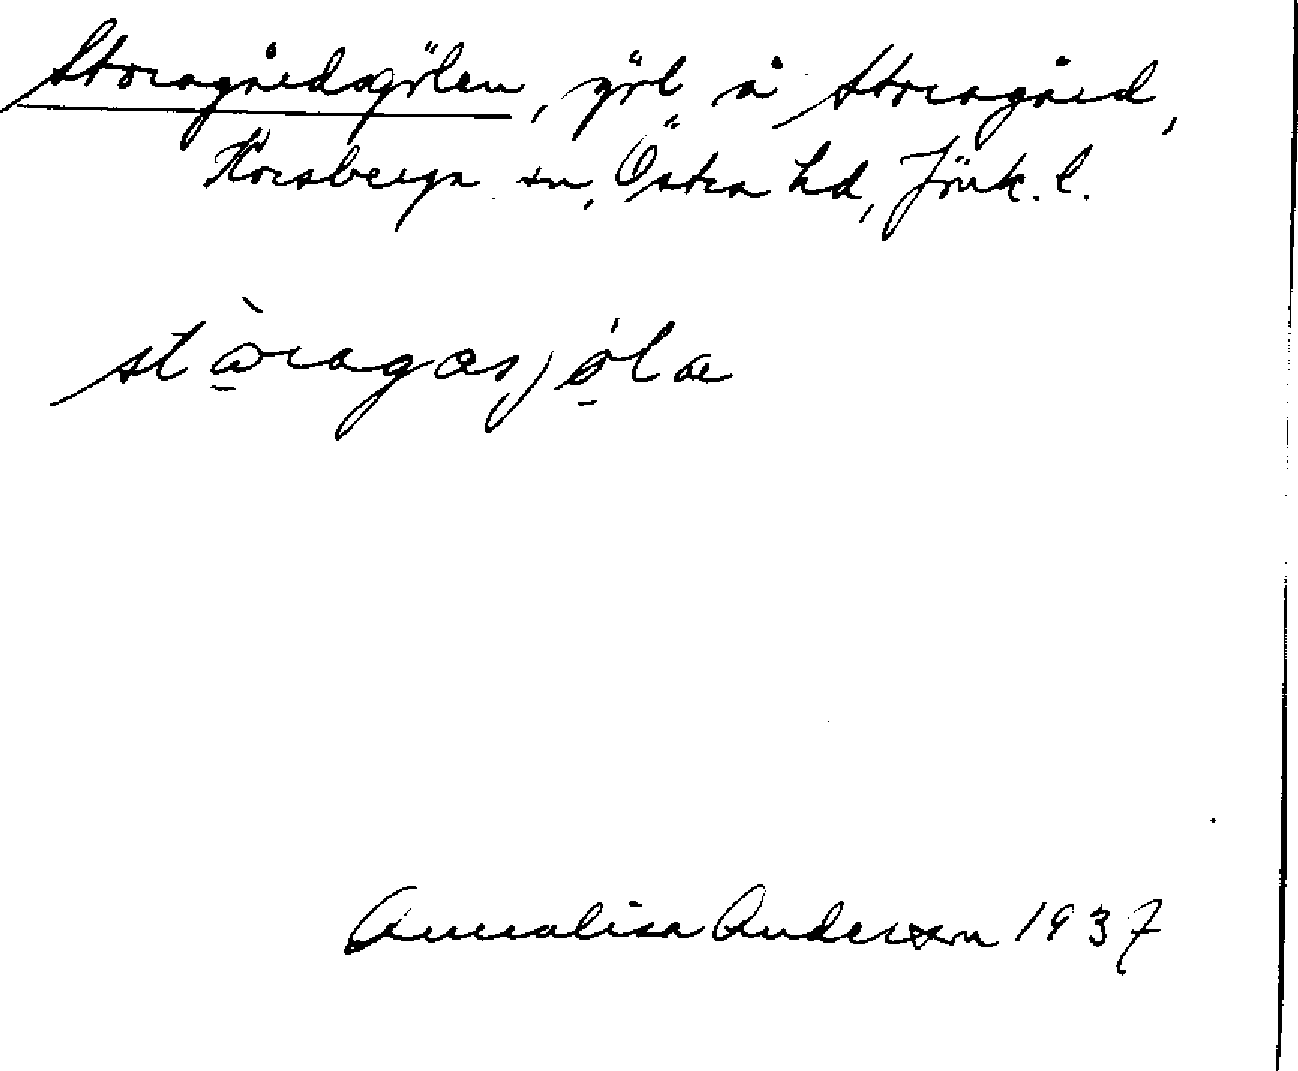 Storagårdsgölen, göl å Storagård,
Korsberga sn, Östra hd, Jönk. l.
stòragasjøla
Annalisa Anderson 1937